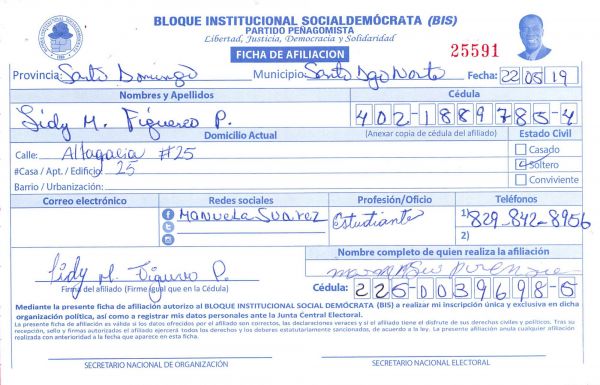 BLOQUE INSTITUCIONAL SOCIALDEMÓCRATA (BIS)
PARTIDO PEÑAGOMISTA
Libertad, Justicia, Democracia y Solidaridad
FICHA DE AFILIACION
25591
Provincia: Santo Domingo Municipio: Santo Dgo Norte Fecha: 22 05 19
Nombres y Apellidos Cédula
Lidy M. Figuereo P. 402-1889785-4
Domicilio Actual (Anexar copia de cédula del afiliado) Estado Civil
Calle: Altagracia #25 Casado
#Casa / Apt. / Edificio: 25 Soltero
Barrio / Urbanización: Conviviente
Correo electrónico Redes sociales Profesión/Oficio Teléfonos
Manuela Suarez Estudiante 1) 829-842-8956
2)
Nombre completo de quien realiza la afiliación
Lidy M. Figuereo P.
Firma del afiliado (Firme igual que en la Cédula) Cédula: 225-0039698-5
Mediante la presente ficha de afiliación autorizo al BLOQUE INSTITUCIONAL SOCIAL DEMÓCRATA (BIS) a realizar mi inscripción única y exclusiva en dicha
organización política, así como a registrar mis datos personales ante la Junta Central Electoral.
La presente ficha de afiliación es válida si los datos ofrecidos por el afiliado son correctos, las declaraciones veraces y si el afiliado tiene el disfrute de sus derechos civiles y políticos. Tras su
recepción, sello y firmas autorizados el afiliado ejercerá todos los derechos y los deberes estatutariamente sancionados, de acuerdo a la ley. La presente afiliación anula cualquier afiliación
realizada con anterioridad a la fecha que aparece en esta ficha.
SECRETARIO NACIONAL DE ORGANIZACIÓN SECRETARIO NACIONAL ELECTORAL